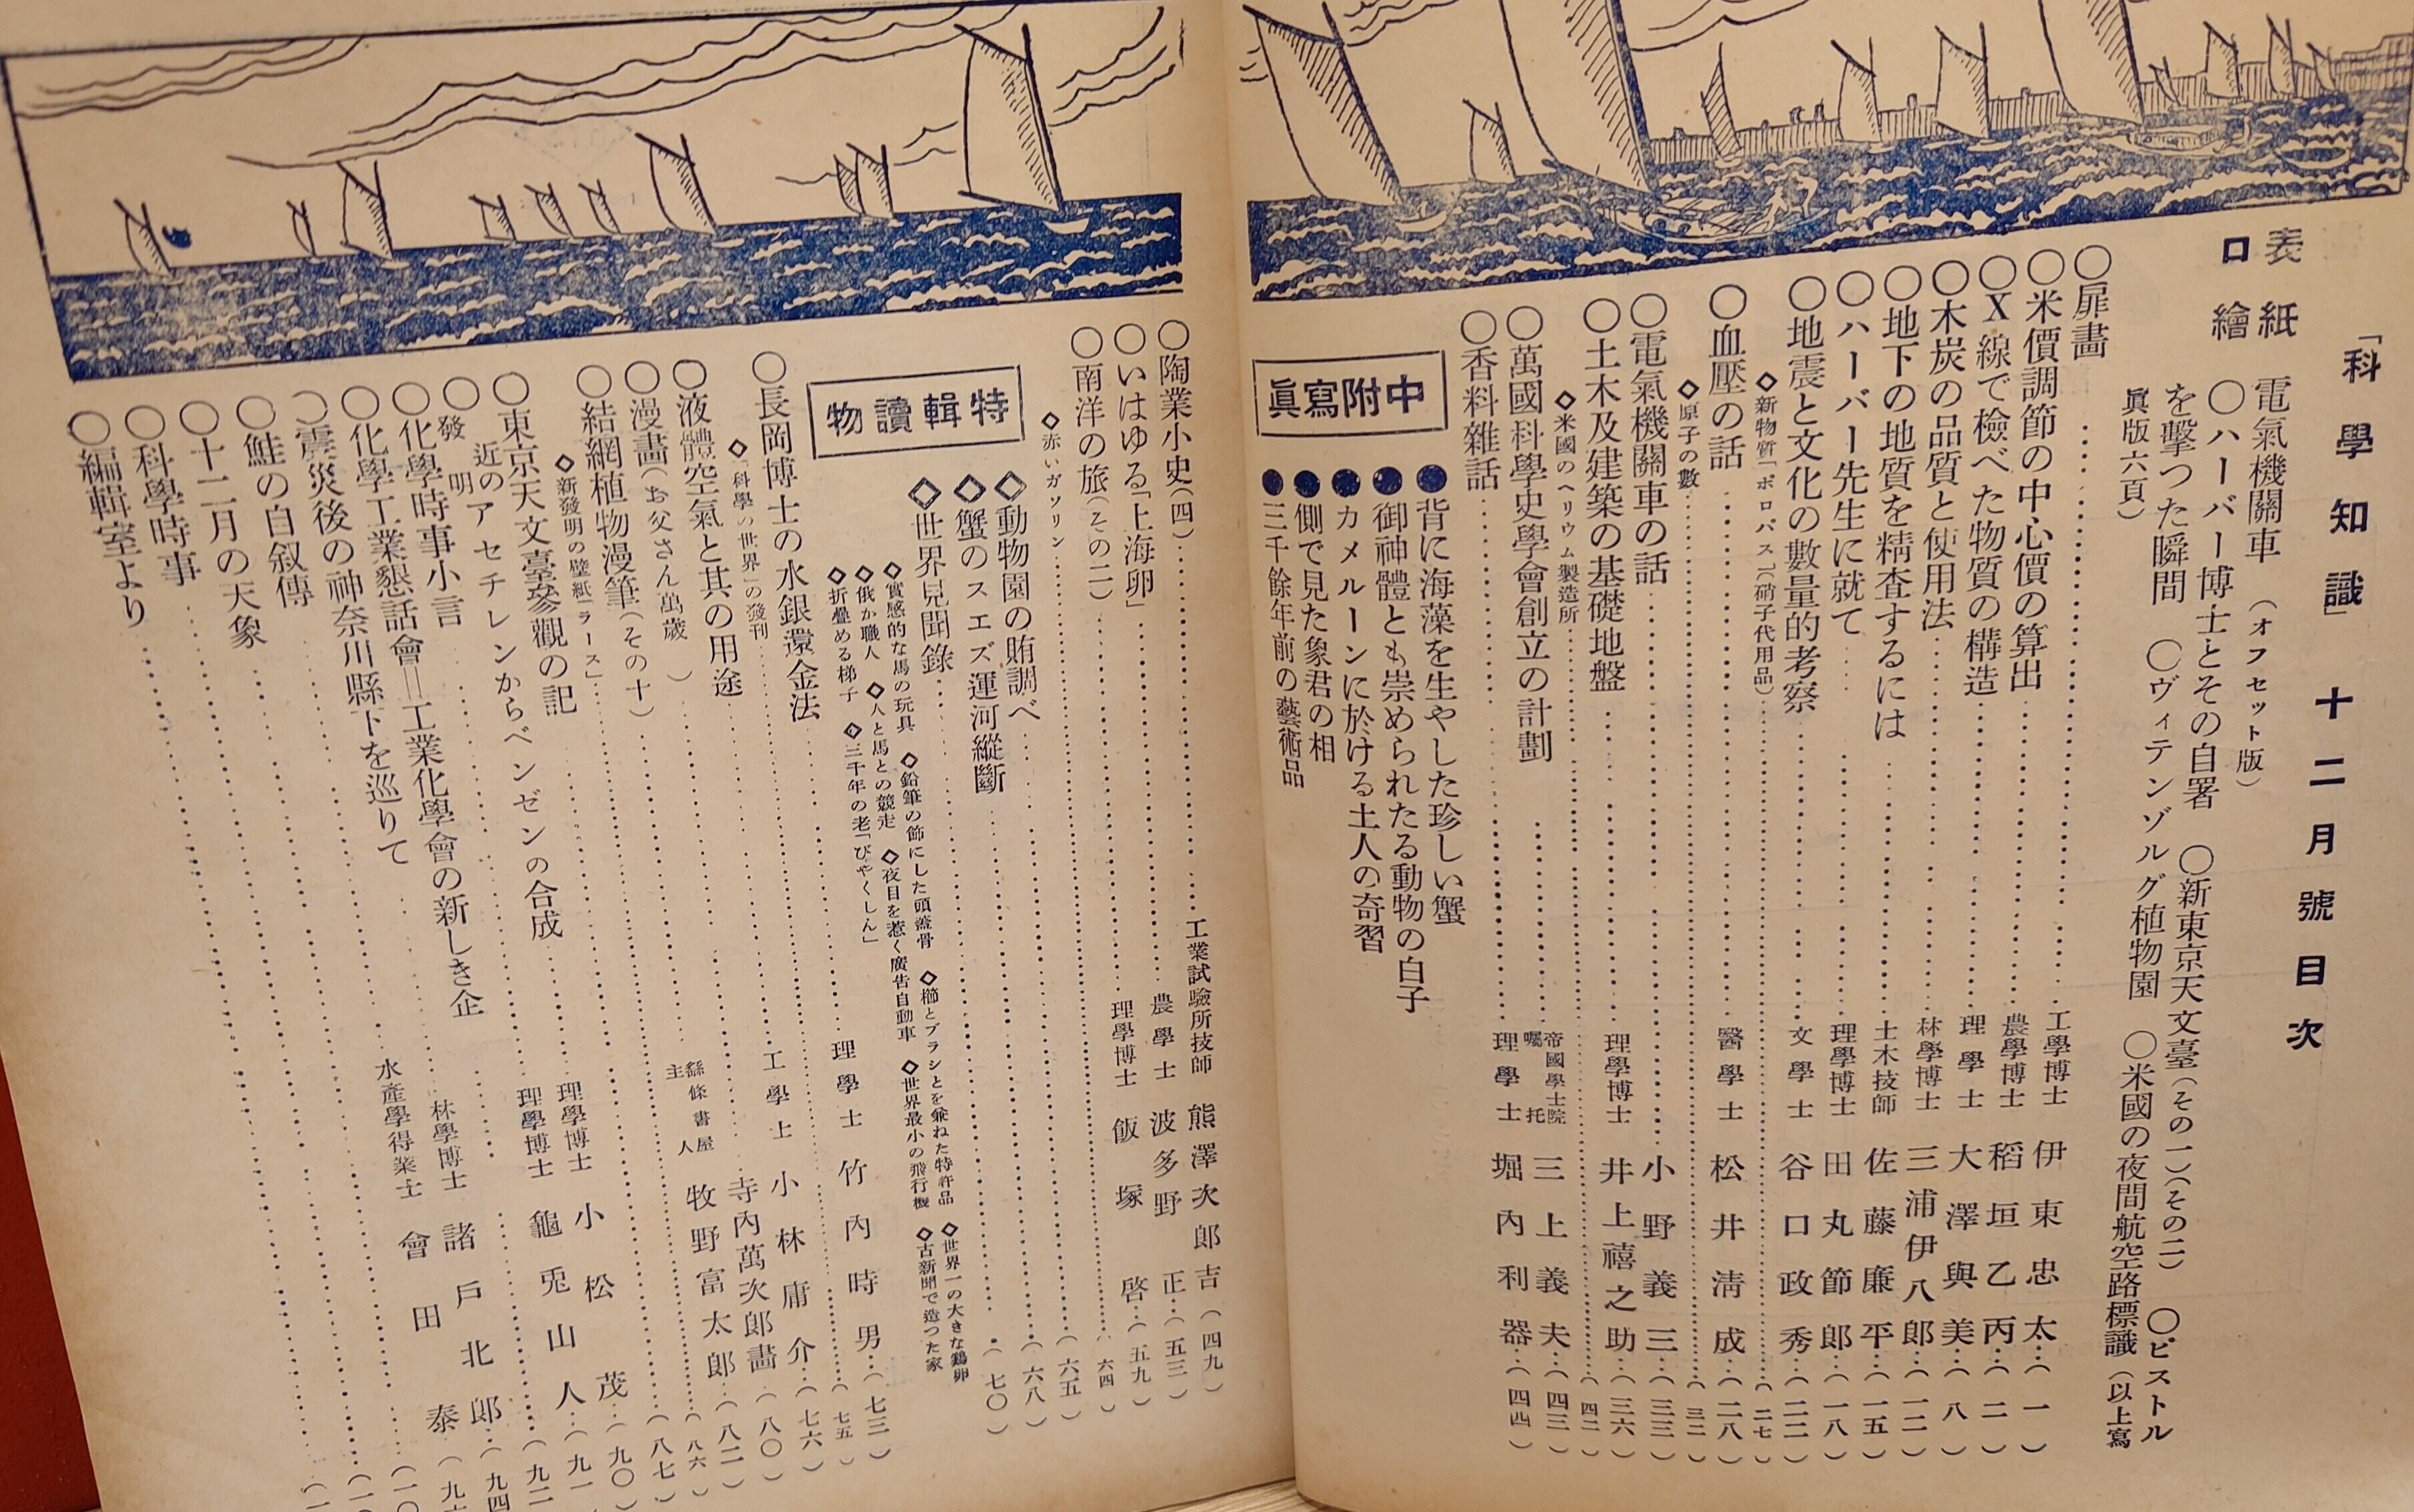 「科學知識」十二月號目次
表紙 電氣機關車 (オフセット版)
口繪 〇ハーバー博士とその自署 〇新東京天文臺(その一)(その二) 〇ピストル
を擊つた瞬間 〇ヴィテンゾルグ植物園 〇米國の夜間航空路標識(以上寫
眞版六頁)
〇扉畫……工學博士 伊東忠太…(一)
〇米價調節の中心價の算出……農學博士 稻垣乙丙…(二)
〇X線で檢べた物質の構造……理學士 大澤與美…(八)
〇木炭の品質と使用法……林學博士 三浦伊八郎…(一二)
〇地下の地質を精査するには……土木技師 佐藤廉平…(一五)
〇ハーバー先生に就て……理學博士 田丸節郎…(一八)
〇地震と文化の數量的考察……文學士 谷口政秀…(二二)
◇新物質「ポロパス」(硝子代用品)……(二七)
〇血壓の話……醫學士 松井淸成…(二八)
◇原子の數……(三二)
〇電氣機關車の話……小野義三…(三三)
〇土木及建築の基礎地盤……理學博士 井上禧之助…(三六)
◇米國のヘリウム製造所……(四二)
〇萬國科學史學會創立の計劃……帝國學士院囑托 三上義夫…(四三)
〇香料雜話……理學士 堀內利器…(四四)
中附寫眞
●背に海藻を生やした珍しい蟹
●御神體とも崇められたる動物の白子
●カメルーンに於ける土人の奇習
●側で見た象君の相
●三千餘年前の藝術品
〇陶業小史(四)……工業試驗所技師 熊澤次郎吉(四九)
〇いはゆる「上海卵」……農學士 波多野正…(五三)
〇南洋の旅(その二)……理學博士 飯塚啓…(五九)
◇赤いガソリン……(六四)
特輯讀物
◇動物園の賄調べ……(六五)
◇蟹のスエズ運河縱斷……(六八)
◇世界見聞錄……(七〇)
◇實感的な馬の玩具 ◇鉛筆の飾にした頭蓋骨 ◇櫛とブラシとを兼ねた特許品 ◇世界一の大きな鷄卵
◇俄か職人 ◇人と馬との競走 ◇夜目を惹く廣告自動車 ◇世界最小の飛行機 ◇古新聞で造つた家
◇折疊める梯子 ◇三千年の老「びやくしん」
〇長岡博士の水銀還金法……理學士 竹內時男…(七三)
◇「科學の世界」の發刊……(七五)
〇液體空氣と其の用途……工學士 小林庸介…(七六)
〇漫畫(お父さん萬歲)……寺內萬次郎畫(八〇)
〇結網植物漫筆(その十)……繇條書屋主人 牧野富太郎…(八二)
◇新發明の壁紙「ラース」……(八六)
〇東京天文臺參觀の記……(八七)
〇近の發明 アセチレンからベンゼンの合成……理學博士 小松茂…(九〇)
〇化學時事小言……理學博士 龜兎山人…(九一)
〇化學工業懇話會=工業化學會の新しき企……(九二
〇震災後の神奈川縣下を巡りて……林學博士 諸戶北郎…(九四
〇鮭の自叙傳……水產學得業士 會田泰…(九
〇十二月の天象……(一〇
〇科學時事……(一〇
〇編輯室より……(一